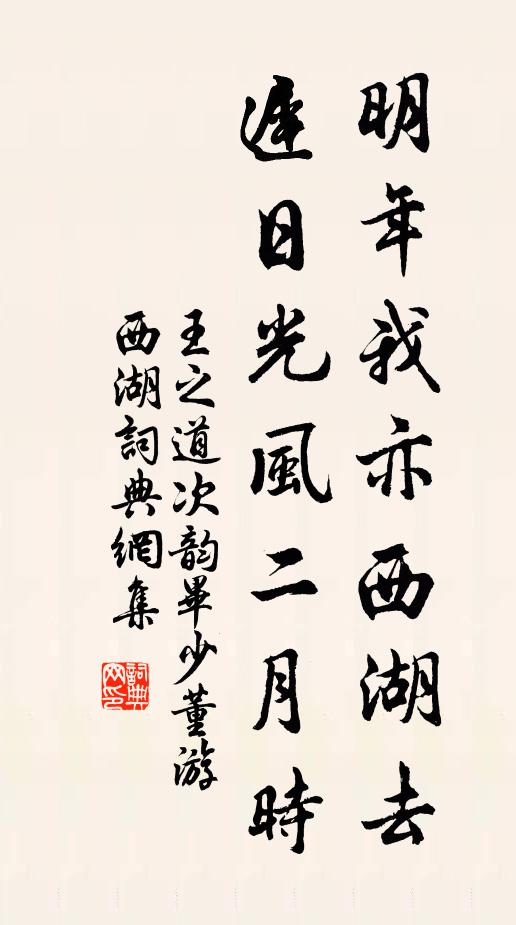 明年我亦西湖去
遲日光風二月時
王之道次韵畢少董游
西湖詞典網集
詞典網印